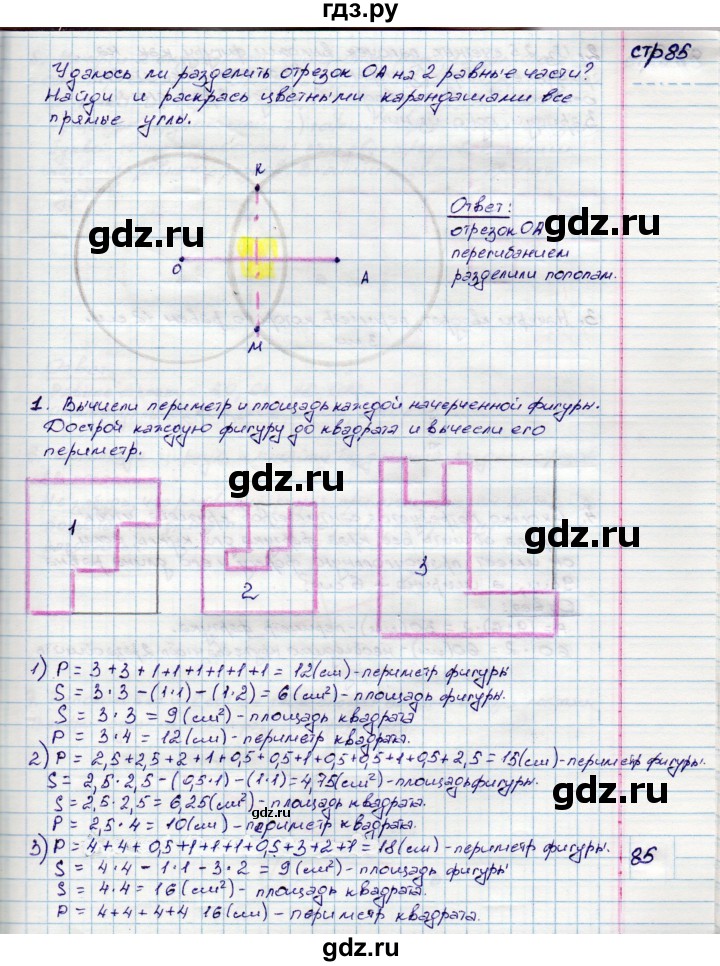 гдз.ру
стр85
Удалось ли разделить отрезок ОА на 2 равные части?
Найди и раскрась цветными карандашами все
прямые углы.
К
О
А
М
Ответ:
отрезок ОА
перегибанием
разделили пополам.
gdz.ru
gdz.ru
1. Вычисли периметр и площадь каждой начерченной фигуры.
Дострой каждую фигуру до квадрата и вычесли его
периметр.
gdz.ru
gdz.ru
1
2
3
1) P = 3+3+1+1+1+1+1+1 = 12(см) - периметр фигуры
S = 3·3 - (1·1) - (1·2) = 6(см²) - площадь фигуры.
S = 3·3 = 9(см²) - площадь квадрата
P = 3·4 = 12(см) - периметр квадрата.
2) P = 2,5+2,5+2+1+0,5+0,5+1+0,5+0,5+1+0,5+2,5=15(см)-периметр фигуры.
S = 2,5·2,5 - (0,5·1) - (1·1) = 4,75(см²) - площадь фигуры.
S = 2,5·2,5 = 6,25(см²) - площадь квадрата.
P = 2,5·4 = 10(см) - периметр квадрата.
3) P = 4+4+0,5+1+1+1+0,5+3+2+1=18(см) - периметр фигуры.
S = 4·4 - 1·1 - 3·2 = 9(см²) - площадь фигуры
S = 4·4 = 16(см²) - площадь квадрата.
P = 4+4+4+4 16(см) - периметр квадрата.
85
gdz.ru
gdz.ru
gdz.ru